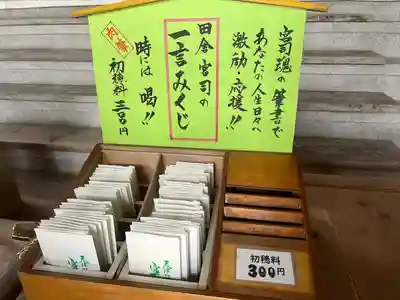 宮司魂の筆書で
あなたの人生日々へ
激励・応援!!
田舎宮司の
一言みくじ
時には 喝!!
初穂料 三百円
初穂料
300円